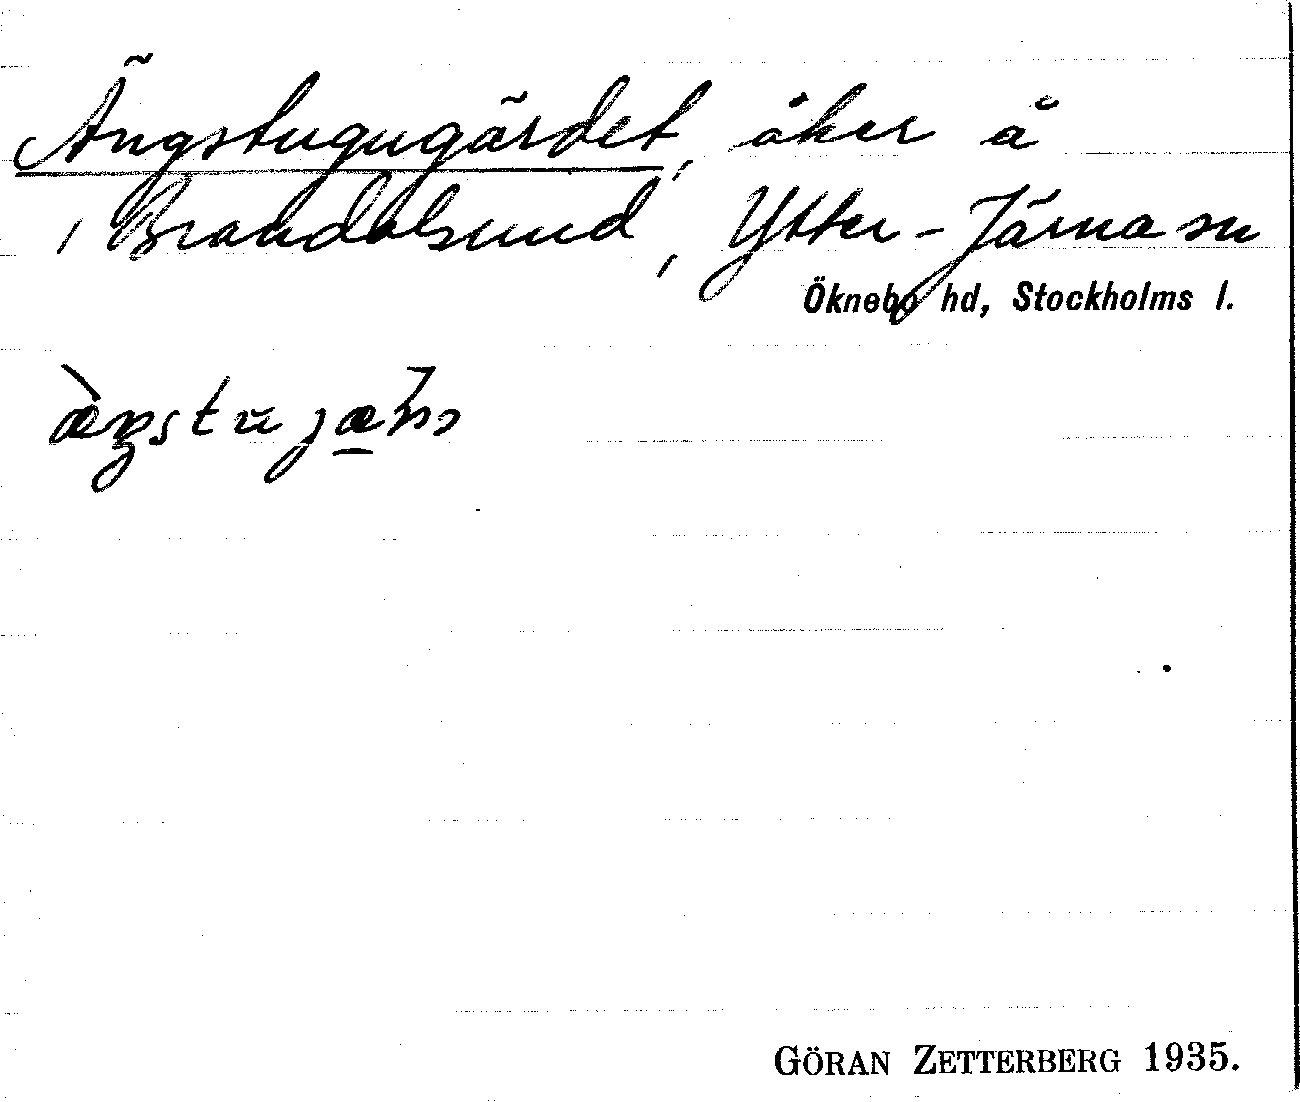 Ängstugugärdet, åker å
Brandalsund, Ytter-Järna sn
Öknebo hd, Stockholms l.
GÖRAN ZETTERBERG 1935.